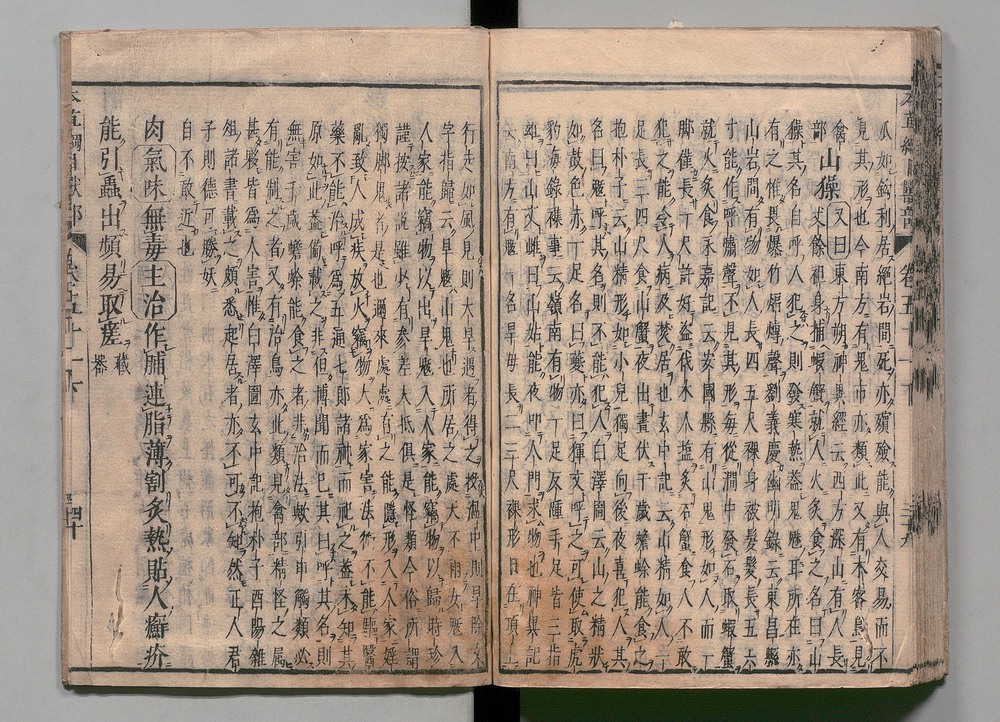 爪如鉤利居絕岩間死亦殯殮能與人交易而不
見其形也今南方有鬼市亦類此又有木客鳥見
禽
部 山𤢖 又曰東方朔神異經云西方深山有人長
丈餘袒身捕蝦蟹就人火炙食之名曰山
𤢖其名自呼人犯之則發寒熱蓋鬼魅耳所在亦
有之惟畏爆竹煏煿聲劉義慶幽明錄云東昌縣
山岩間有物如人長四五尺裸身被髮髮長五六
寸能作呼嘯聲不見其形每從澗中發石取蝦蟹
就火炙食永嘉記云安國縣有山鬼形如人而一
脚僅長一尺許好盜伐木人鹽炙石蟹食人不敢
犯之能令人病及焚居也玄中記云山精如人一
足長三四尺食山蟹夜出晝伏千歲蟾蜍能食之
抱朴子云山精形如小兒獨足向後夜喜犯人其
名曰魃呼其名則不能犯人白澤圖云山之精狀
如鼓色赤一足名曰夔亦曰揮文呼之可使取虎
豹海錄碎事云嶺南有物一足反踵手足皆三指
雄曰山丈雌曰山姑能夜叩人門求物也神異記
云南方有魃一名旱母長二三尺裸形目在頂上
行走如風見則大旱遇者得之投溷中則旱除文
字指歸云旱魃山鬼也所居之處天不雨女魃入
人家能竊物以出旱魃入人家能竊物以歸時珍
謹按諸說雖少有參差大抵俱是怪類今俗所謂
獨脚鬼者是也邇來處處有之能隱形入人家淫
亂致人成疾放火竊物大爲家害法術不能驅醫
藥不能治呼爲五通七郎諸神而祀之蓋未知其
原如此故備載之非但博聞而已其曰呼其名則
無害千歲蟾蜍能食之者非治法歟引申觸類必
有能制之者又有治鳥亦此類見禽部精怪之屬
甚夥皆爲人害惟白澤圖玄中記抱朴子酉陽雜
俎諸書載之頗悉起居者亦不可不知然正人君
子則德可勝妖
自不敢近也
肉氣味無毒主治作脯連脂薄割炙熱貼人癬疥
能引蟲出頻易取瘥 藏
器
本草綱目獸部 卷五十一下 四十